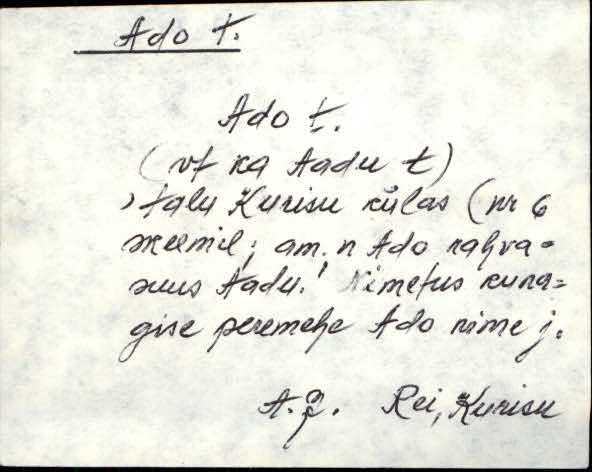 Ado t.
Ado t.
(vt ka Aadu t)
, talu Kurisu külas (nr 6
skeemil; am. n Ado rahva-
suus Aadu. Nimetus kuna=
gise peremehe Ado nime j.
Rei, Kurisu